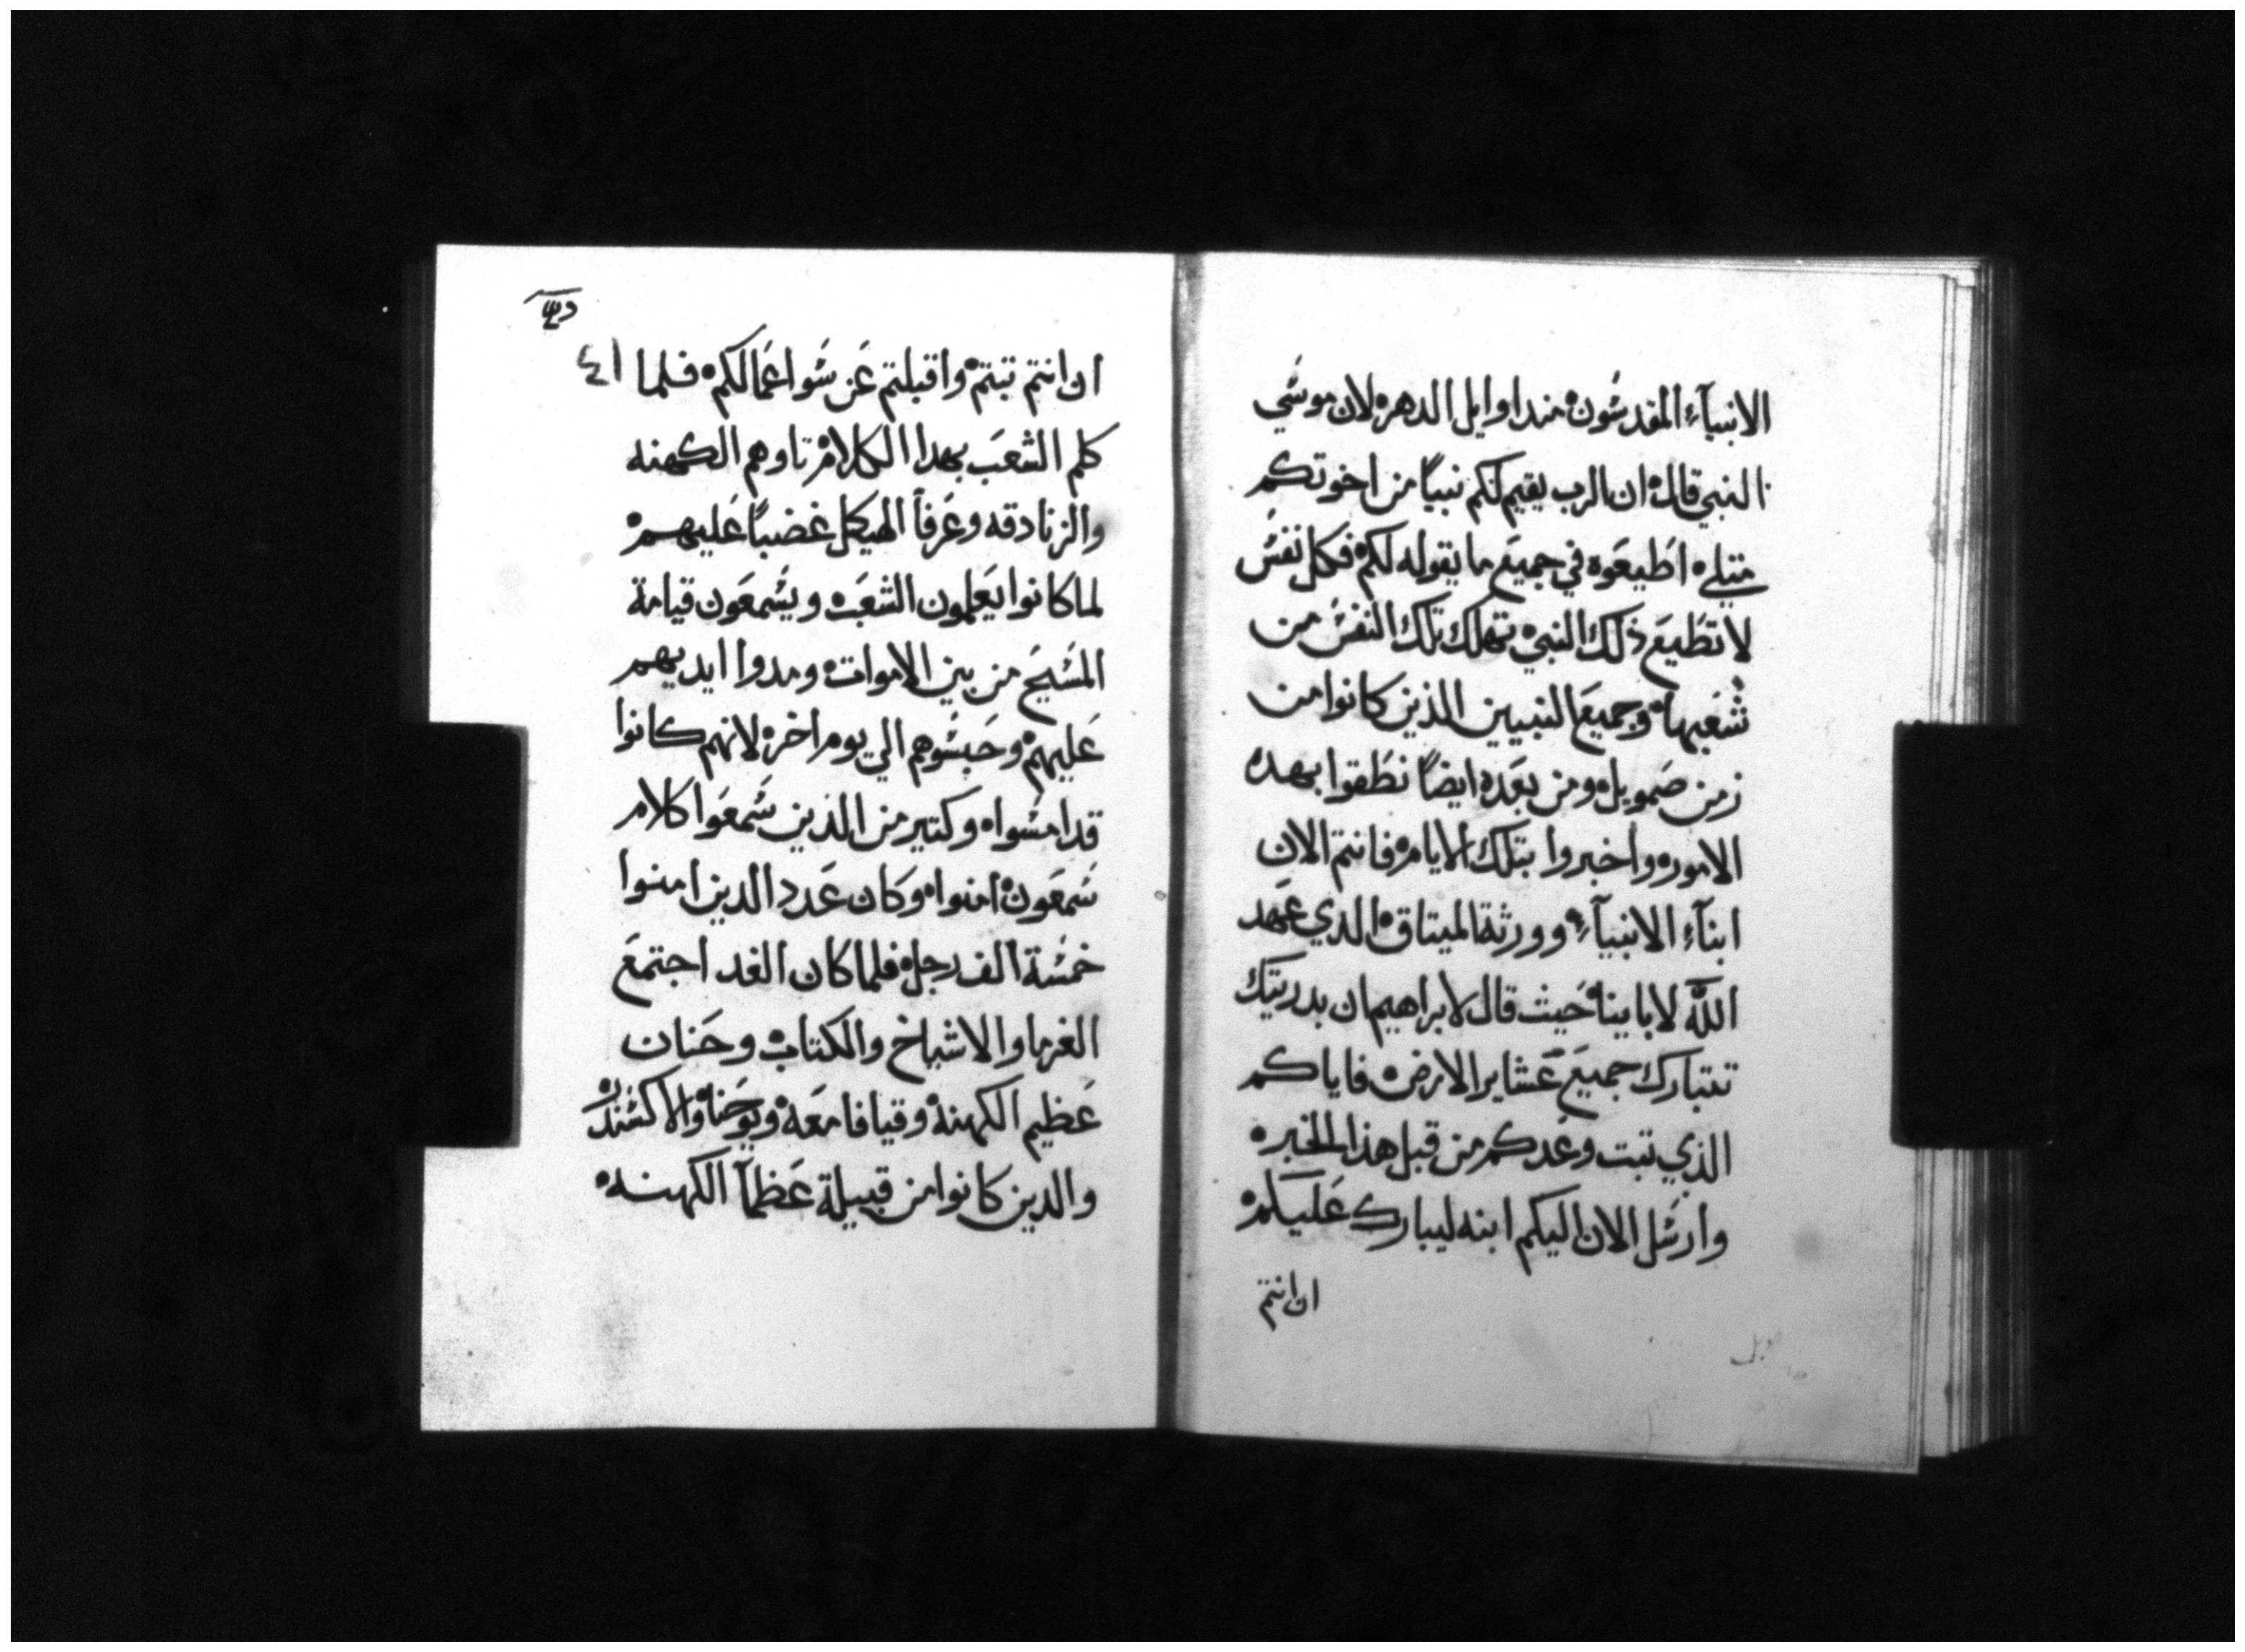 الانبيآء المقدسون ه مندا وايل الدهر ه لان موسي
النبي قال ه ان الرب يقيم لكم نبيًا من اخوتكم
متلي ه اطيعوه في جميع ما يقوله لكم ه فكل نفس
لا تطيع ذلك النبي ه تهلك تلك النفس من
شعبها ه وجميع النبيين الذين كانوا من
زمن صمويل ه ومن بعده ايضًا نطقوا بهده
الامور ه واخبروا بتلك الايام ه فانتم الان
ابنآء الانبيآء ه وورثة الميتاق ه الدي عهد
اللّه لاباينا ه حيث قال لابراهيم ان بدريتك
تتبارك جميع عشاير الارض ه فاياكم
الذي تبت وعدكم من قبل هذا الخبر ه
وارسل الان اليكم ابنه ليبارك عليكم ه
ان انتم
٤١
ان انتم تبتم ه واقبلتم عن سوا عمالكم ه فلما
كلم الشعب بهدا الكلام ه تاوهم الكهنه
والزنادقه وعرفآ الهيكل غضبًا عليهم ه
لما كانوا يعلمون الشعب ه ويسمعون قيامة
المسيح من بين الاموات ه ومدوا ايديهم
عليهم ه وحبسوهم الي يوم اخر ه لانهم كانوا
قد امسوا ه وكتير من الدين سمعوا كلام
سمعون ه امنوا ه وكان عدد الدين امنوا
خمسة الف رجل ه فلما كان الغد اجتمع
الغرما والاشياخ والكتاب ه وحنان
عظيم الكهنة ه وقيافا معه ه ويوحنا ه والاكسندر ه
والدين كانوا من قبيلة عظمآ الكهنه ه